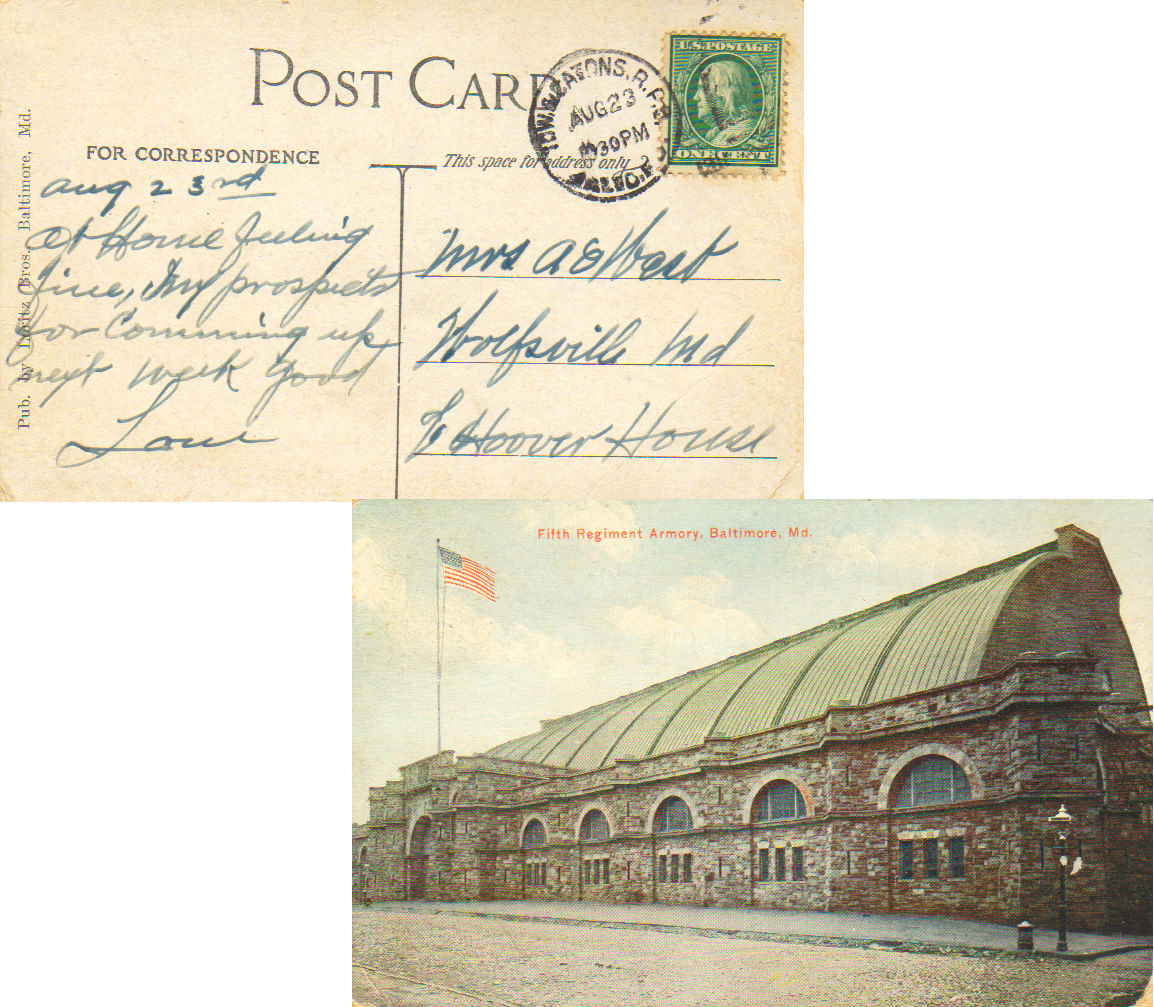 POST CARD
U.S. POSTAGE
ONE CENT
AUG 23
30 PM
BALTO.
Pub. by Bros. Baltimore, Md.
FOR CORRESPONDENCE
This space for address only
Aug 23rd
At Home feeling
fine, My prospects
for Comming up
next week good
Mrs A E West
Wolfsville Md
c/o Hoover House
Fifth Regiment Armory, Baltimore, Md.